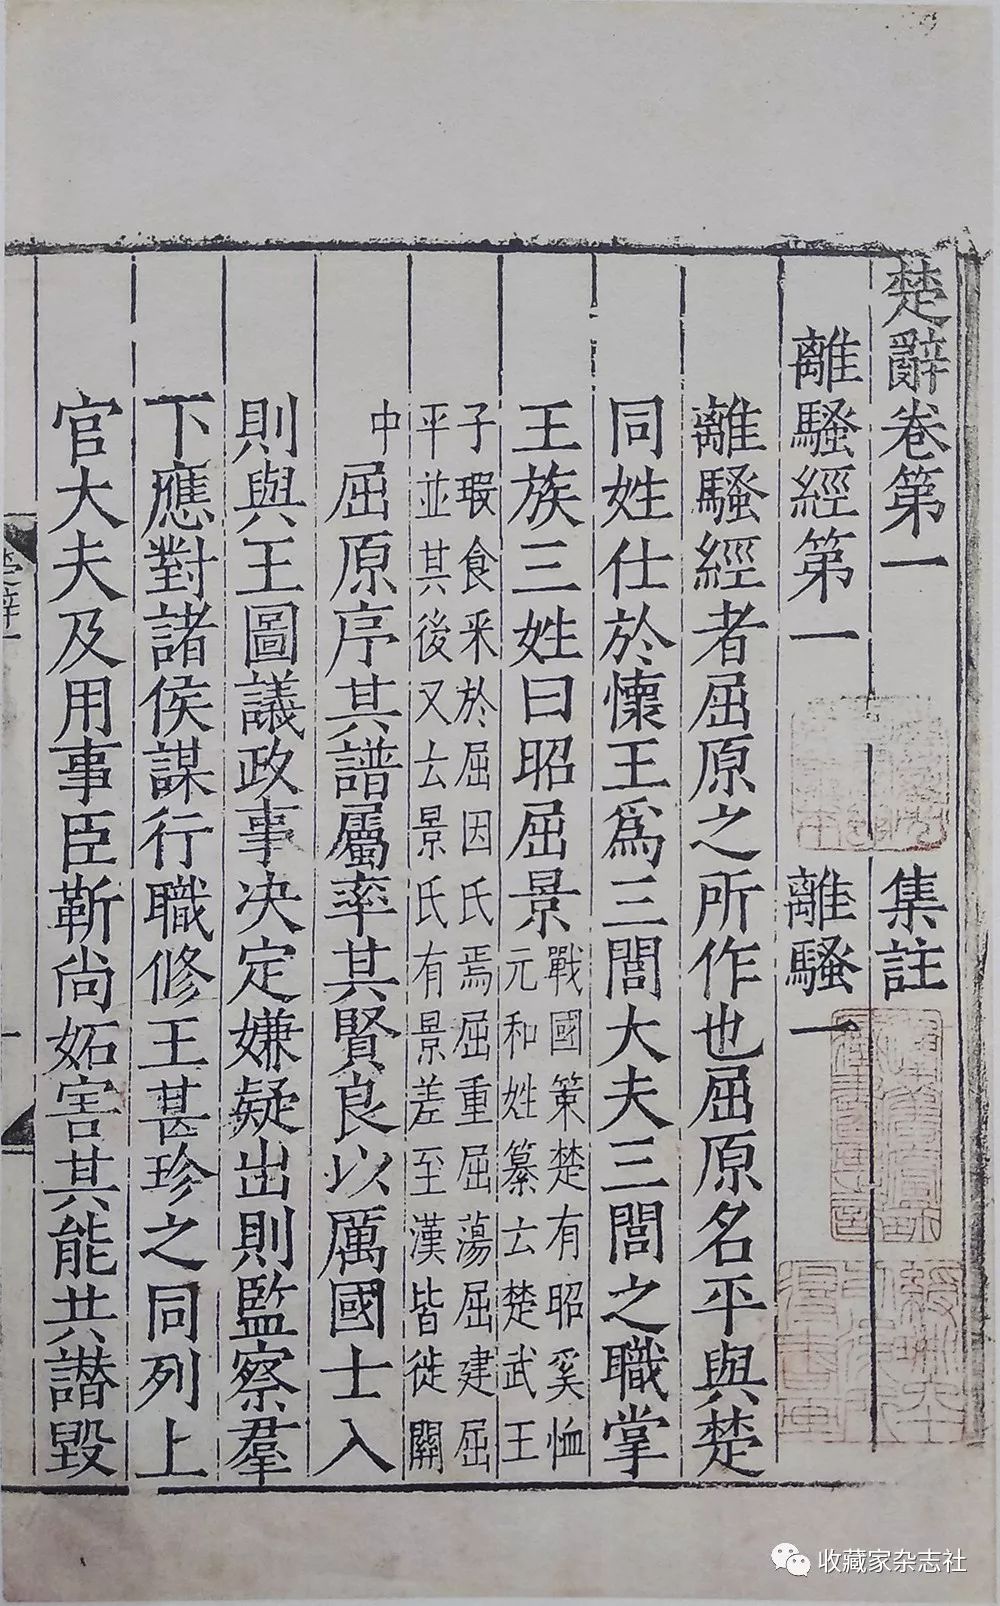 楚辭卷第一
集註
離騷經第一
離騷一
離騷經者屈原之所作也屈原名平與楚
同姓仕於懷王爲三閭大夫三閭之職掌
王族三姓曰昭屈景
戰國策楚有昭奚恤
元和姓纂云楚武王
子瑕食釆於屈因氏焉屈重屈蕩屈建屈
平並其後又云景氏有景差至漢皆徙關
中
屈原序其譜屬率其賢良以厲國士入
則與王圖議政事决定嫌疑出則監察羣
下應對諸侯謀行職修王甚珍之同列上
官大夫及用事臣靳尚妬害其能共譖毀
楚辞一
收藏家杂志社